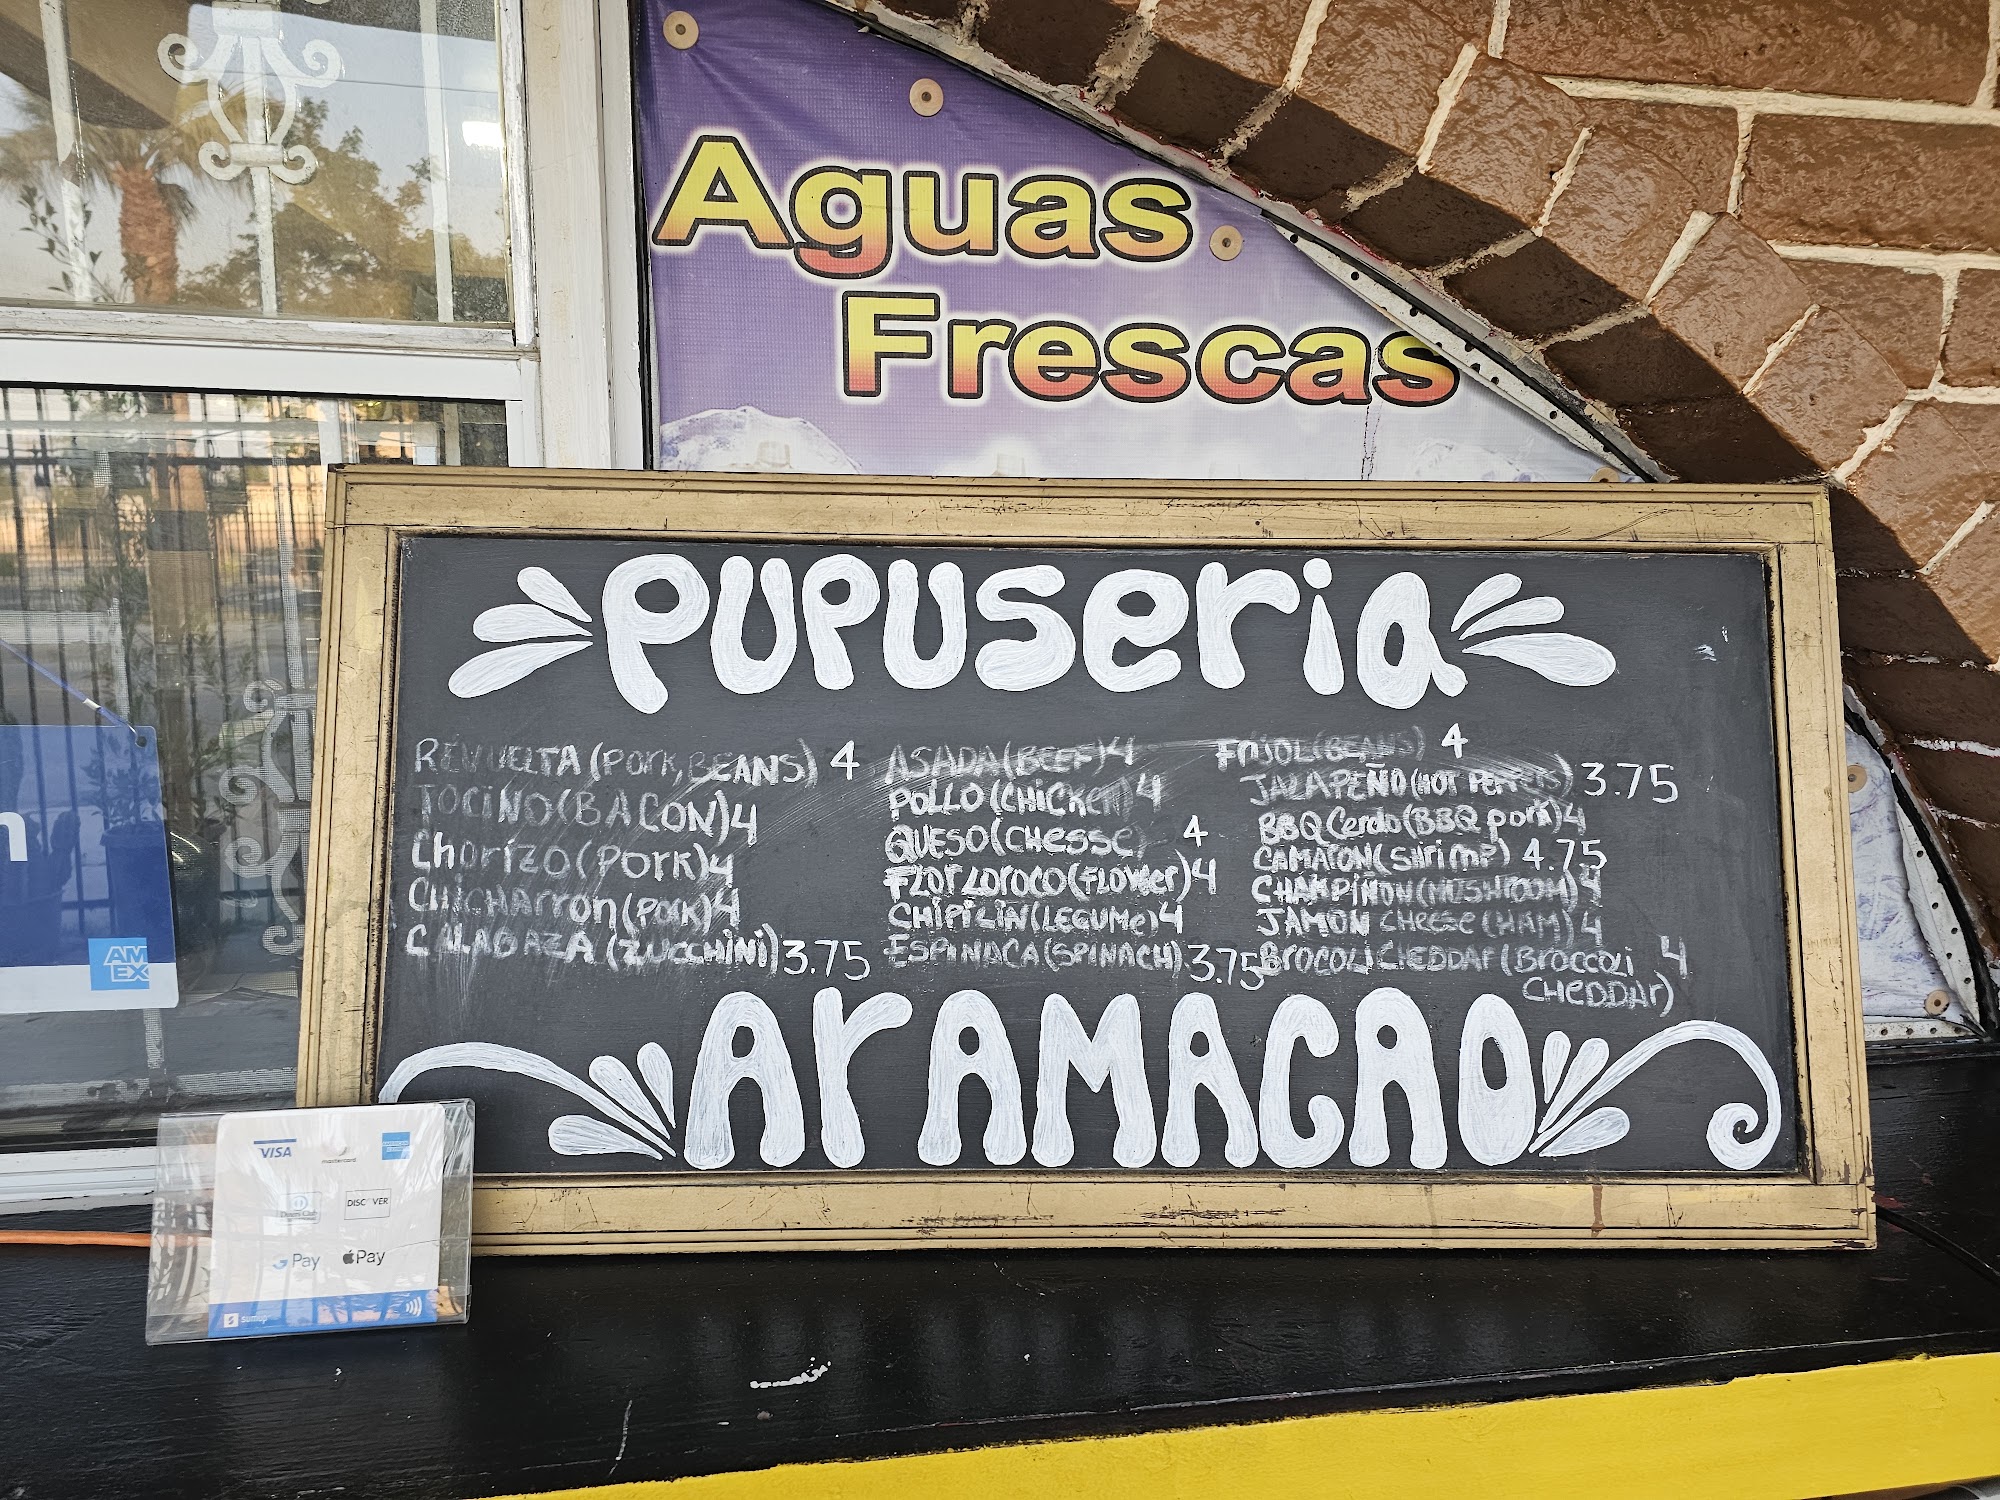 Aguas
Frescas
PUPUSEria
REVUELTA (PORK, BEANS) 4
TOCINO (BACON) 4
Chorizo (PORK) 4
CHICHArrON (PORK) 4
CALABAZA (ZUCCHINI) 3.75
ASADA (BEEF) 4
POLLO (CHICKEN) 4
QUESO (CHESSE) 4
FLOR LOROCO (FLOWER) 4
CHIPILIN (LEGUME) 4
ESPINACA (SPINACH) 3.75
FriJOL (BEANS) 4
JALAPEÑO (HOT PEPPERS) 3.75
BBQ Cerdo (BBQ pork) 4
CAMARON (Shrimp) 4.75
CHAMPIÑON (MUSHROOM) 4
JAMON CHEESE (HAM) 4
BrOCOLI CHEDDAr (BrOCCOLI 4
CHEDDAr)
ArAMACAO
n
AM
EX
VISA
mastercard
Diners Club
DISCOVER
G Pay
Pay
sumup